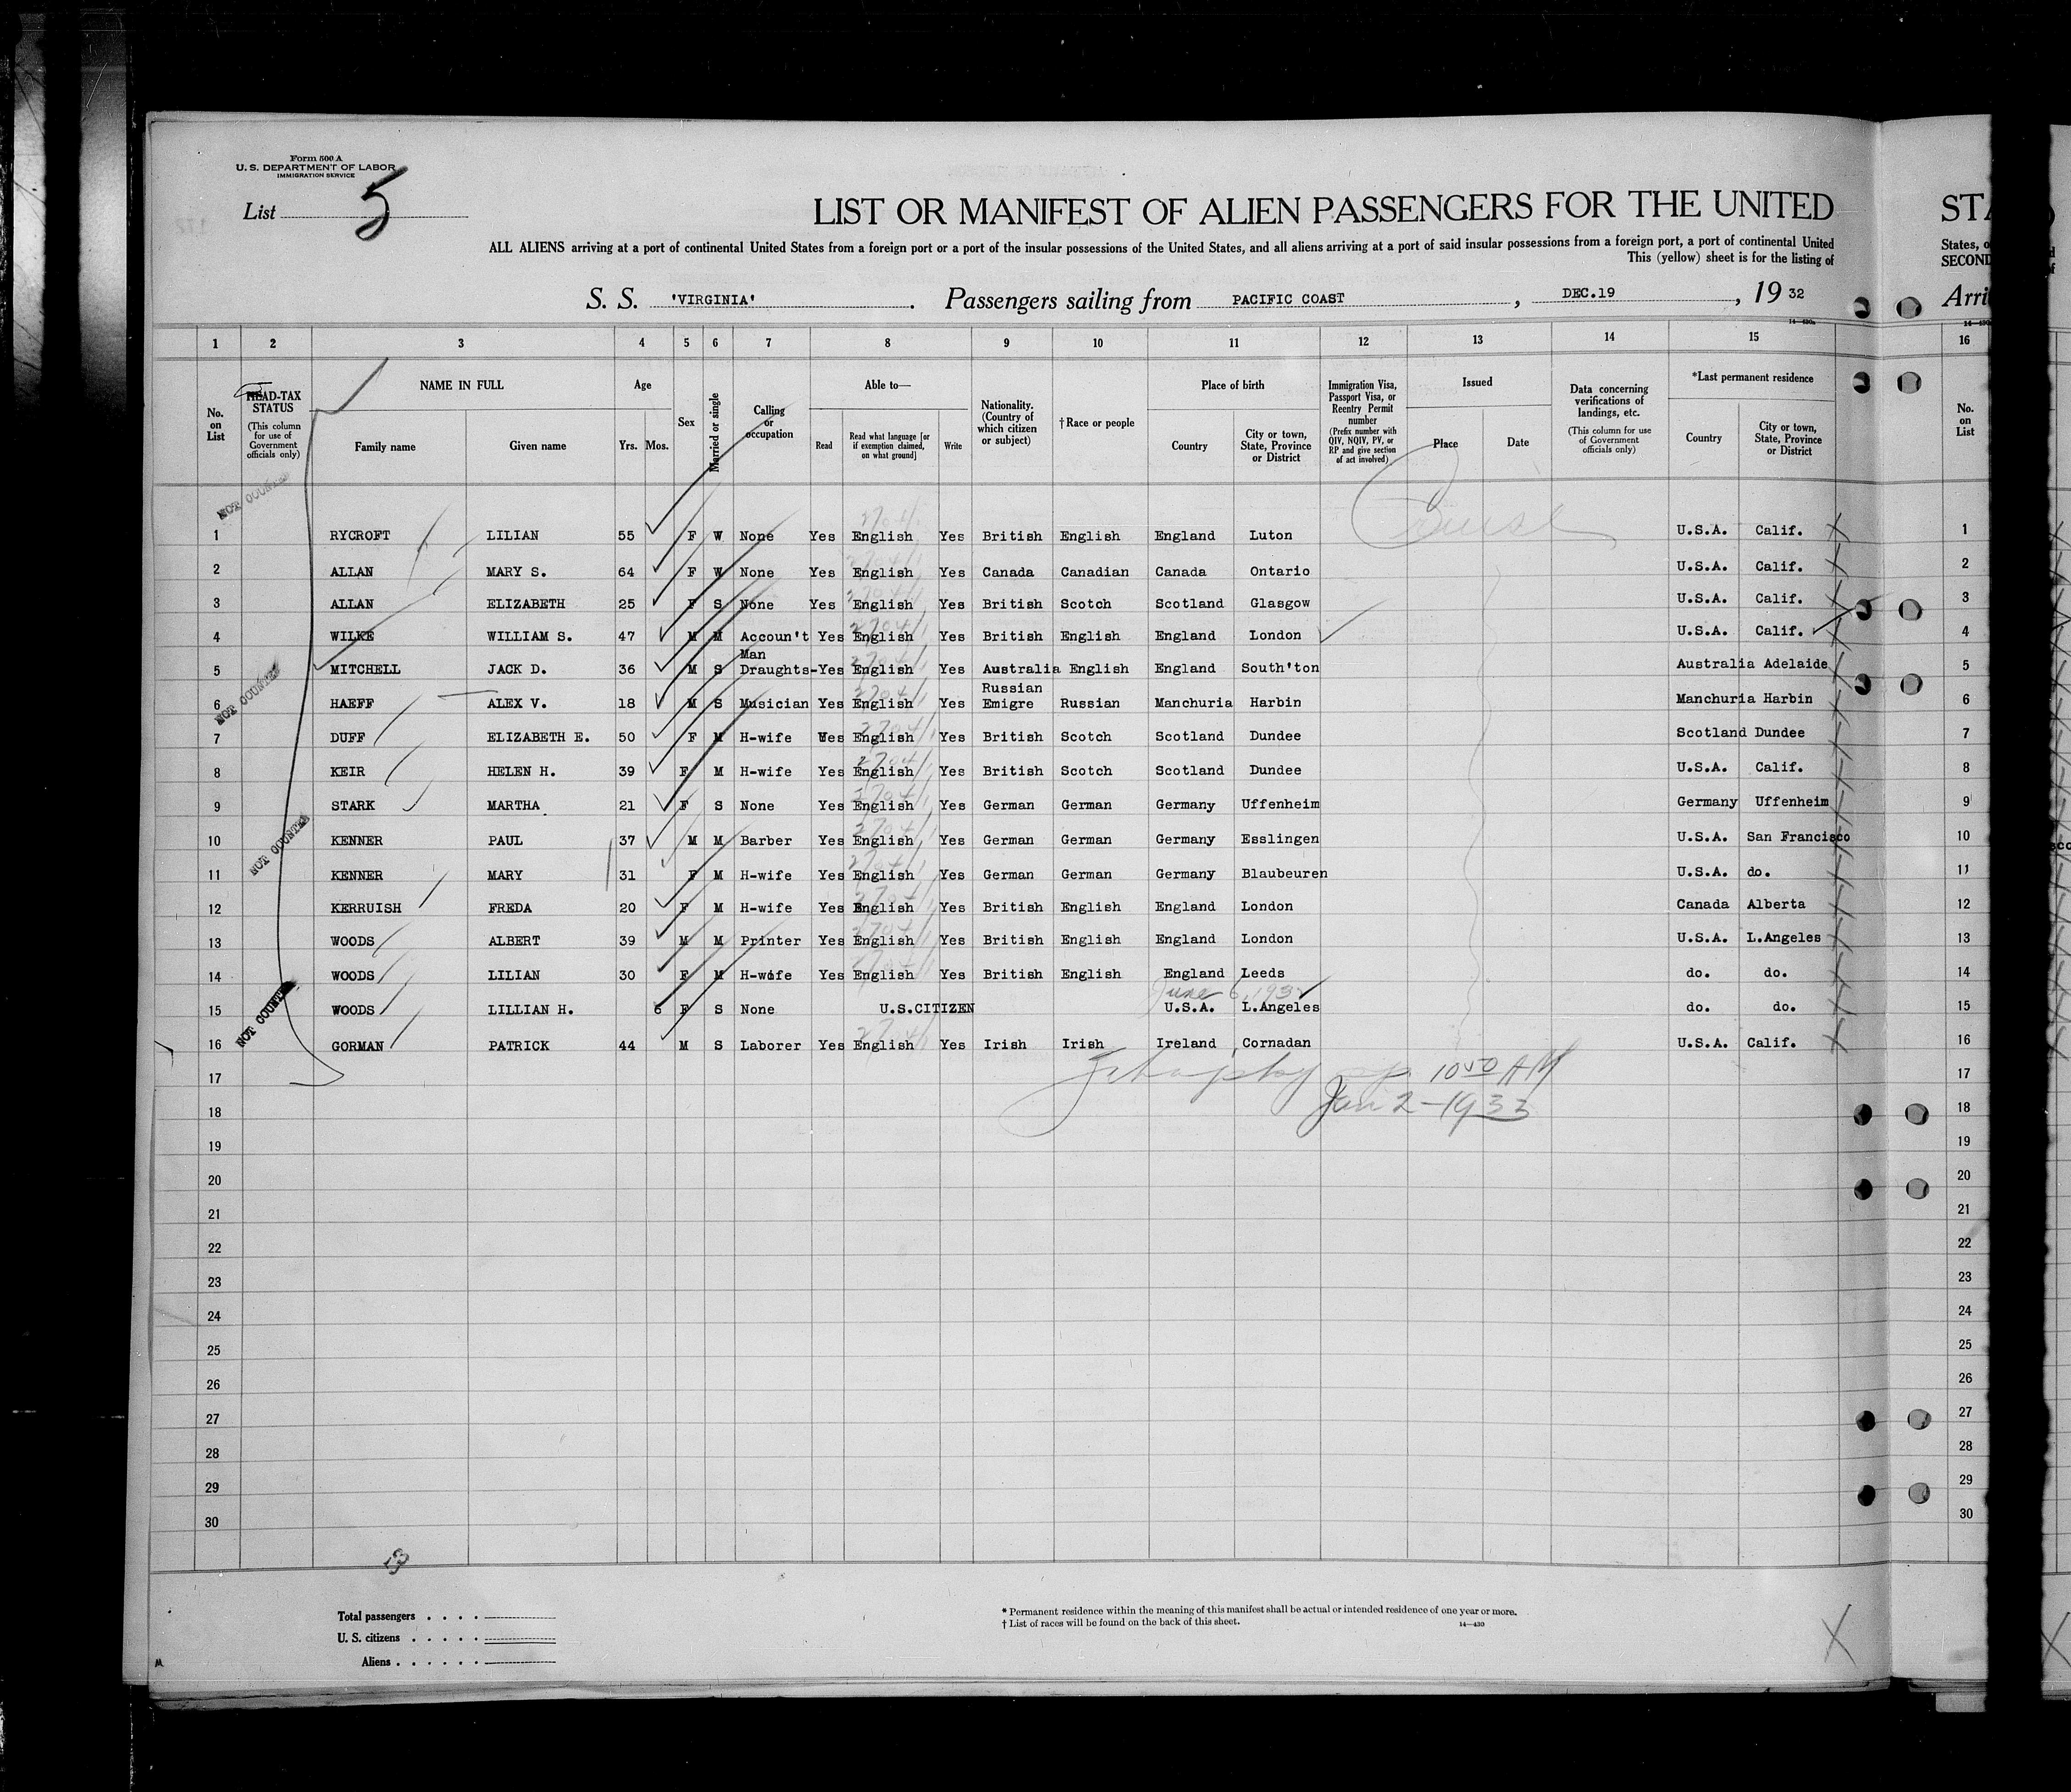 Form 500 A
U. S. DEPARTMENT OF LABOR
IMMIGRATION SERVICE
List 5
LIST OR MANIFEST OF ALIEN PASSENGERS FOR THE UNITED
ALL ALIENS arriving at a port of continental United States from a foreign port or a port of the insular possessions of the United States, and all aliens arriving at a port of said insular possessions from a foreign port, a port of continental United
This (yellow) sheet is for the listing of
S. S. 'VIRGINIA'. Passengers sailing from PACIFIC COAST, DEC.19, 19 32
STA
States, o
SECOND
Arri
1 2 3 4 5 6 7 8 9 10 11 12 13 14 15 16
No. on List
HEAD-TAX STATUS (This column for use of Government officials only)
NAME IN FULL
Family name Given name
Age
Yrs. Mos.
Sex
Married or single
Calling or occupation
Able to—
Read
Read what language [or if exemption claimed, on what ground]
Write
Nationality. (Country of which citizen or subject)
†Race or people
Place of birth
Country
City or town, State, Province or District
Immigration Visa, Passport Visa, or Reentry Permit number (Prefix number with QIV, NQIV, PV, or RP and give section of act involved)
Issued
Place Date
Data concerning verifications of landings, etc. (This column for use of Government officials only)
*Last permanent residence
Country
City or town, State, Province or District
No. on List
NOT COUNTED
1 RYCROFT LILIAN 55 F W None Yes English Yes British English England Luton U.S.A. Calif. 1
2 ALLAN MARY S. 64 F W None Yes English Yes Canada Canadian Canada Ontario U.S.A. Calif. 2
3 ALLAN ELIZABETH 25 F S None Yes English Yes British Scotch Scotland Glasgow U.S.A. Calif. 3
4 WILKE WILLIAM S. 47 M M Accoun't Yes English Yes British English England London U.S.A. Calif. 4
Man
5 MITCHELL JACK D. 36 M S Draughts- Yes English Yes Australia English England South'ton Australia Adelaide 5
NOT COUNTED
Russian
6 HAEFF ALEX V. 18 M S Musician Yes English Yes Emigre Russian Manchuria Harbin Manchuria Harbin 6
7 DUFF ELIZABETH E. 50 F M H-wife Yes English Yes British Scotch Scotland Dundee Scotland Dundee 7
8 KEIR HELEN H. 39 F M H-wife Yes English Yes British Scotch Scotland Dundee U.S.A. Calif. 8
9 STARK MARTHA 21 F S None Yes English Yes German German Germany Uffenheim Germany Uffenheim 9
NOT COUNTED
10 KENNER PAUL 37 M M Barber Yes English Yes German German Germany Esslingen U.S.A. San Francisco 10
11 KENNER MARY 31 F M H-wife Yes English Yes German German Germany Blaubeuren U.S.A. do. 11
12 KERRUISH FREDA 20 F M H-wife Yes English Yes British English England London Canada Alberta 12
13 WOODS ALBERT 39 M M Printer Yes English Yes British English England London U.S.A. L.Angeles 13
14 WOODS LILIAN 30 F M H-wife Yes English Yes British English England Leeds do. do. 14
June 6, 1932
NOT COUNTED
15 WOODS LILLIAN H. 6 F S None U.S.CITIZEN U.S.A. L.Angeles do. do. 15
16 GORMAN PATRICK 44 M S Laborer Yes English Yes Irish Irish Ireland Cornadan U.S.A. Calif. 16
17 10 50 AM
18 Jan 2-1933 18
19 19
20 20
21 21
22 22
23 23
24 24
25 25
26 26
27 27
28 28
29 29
30 30
Total passengers
U. S. citizens
Aliens
* Permanent residence within the meaning of this manifest shall be actual or intended residence of one year or more.
† List of races will be found on the back of this sheet.
14—430